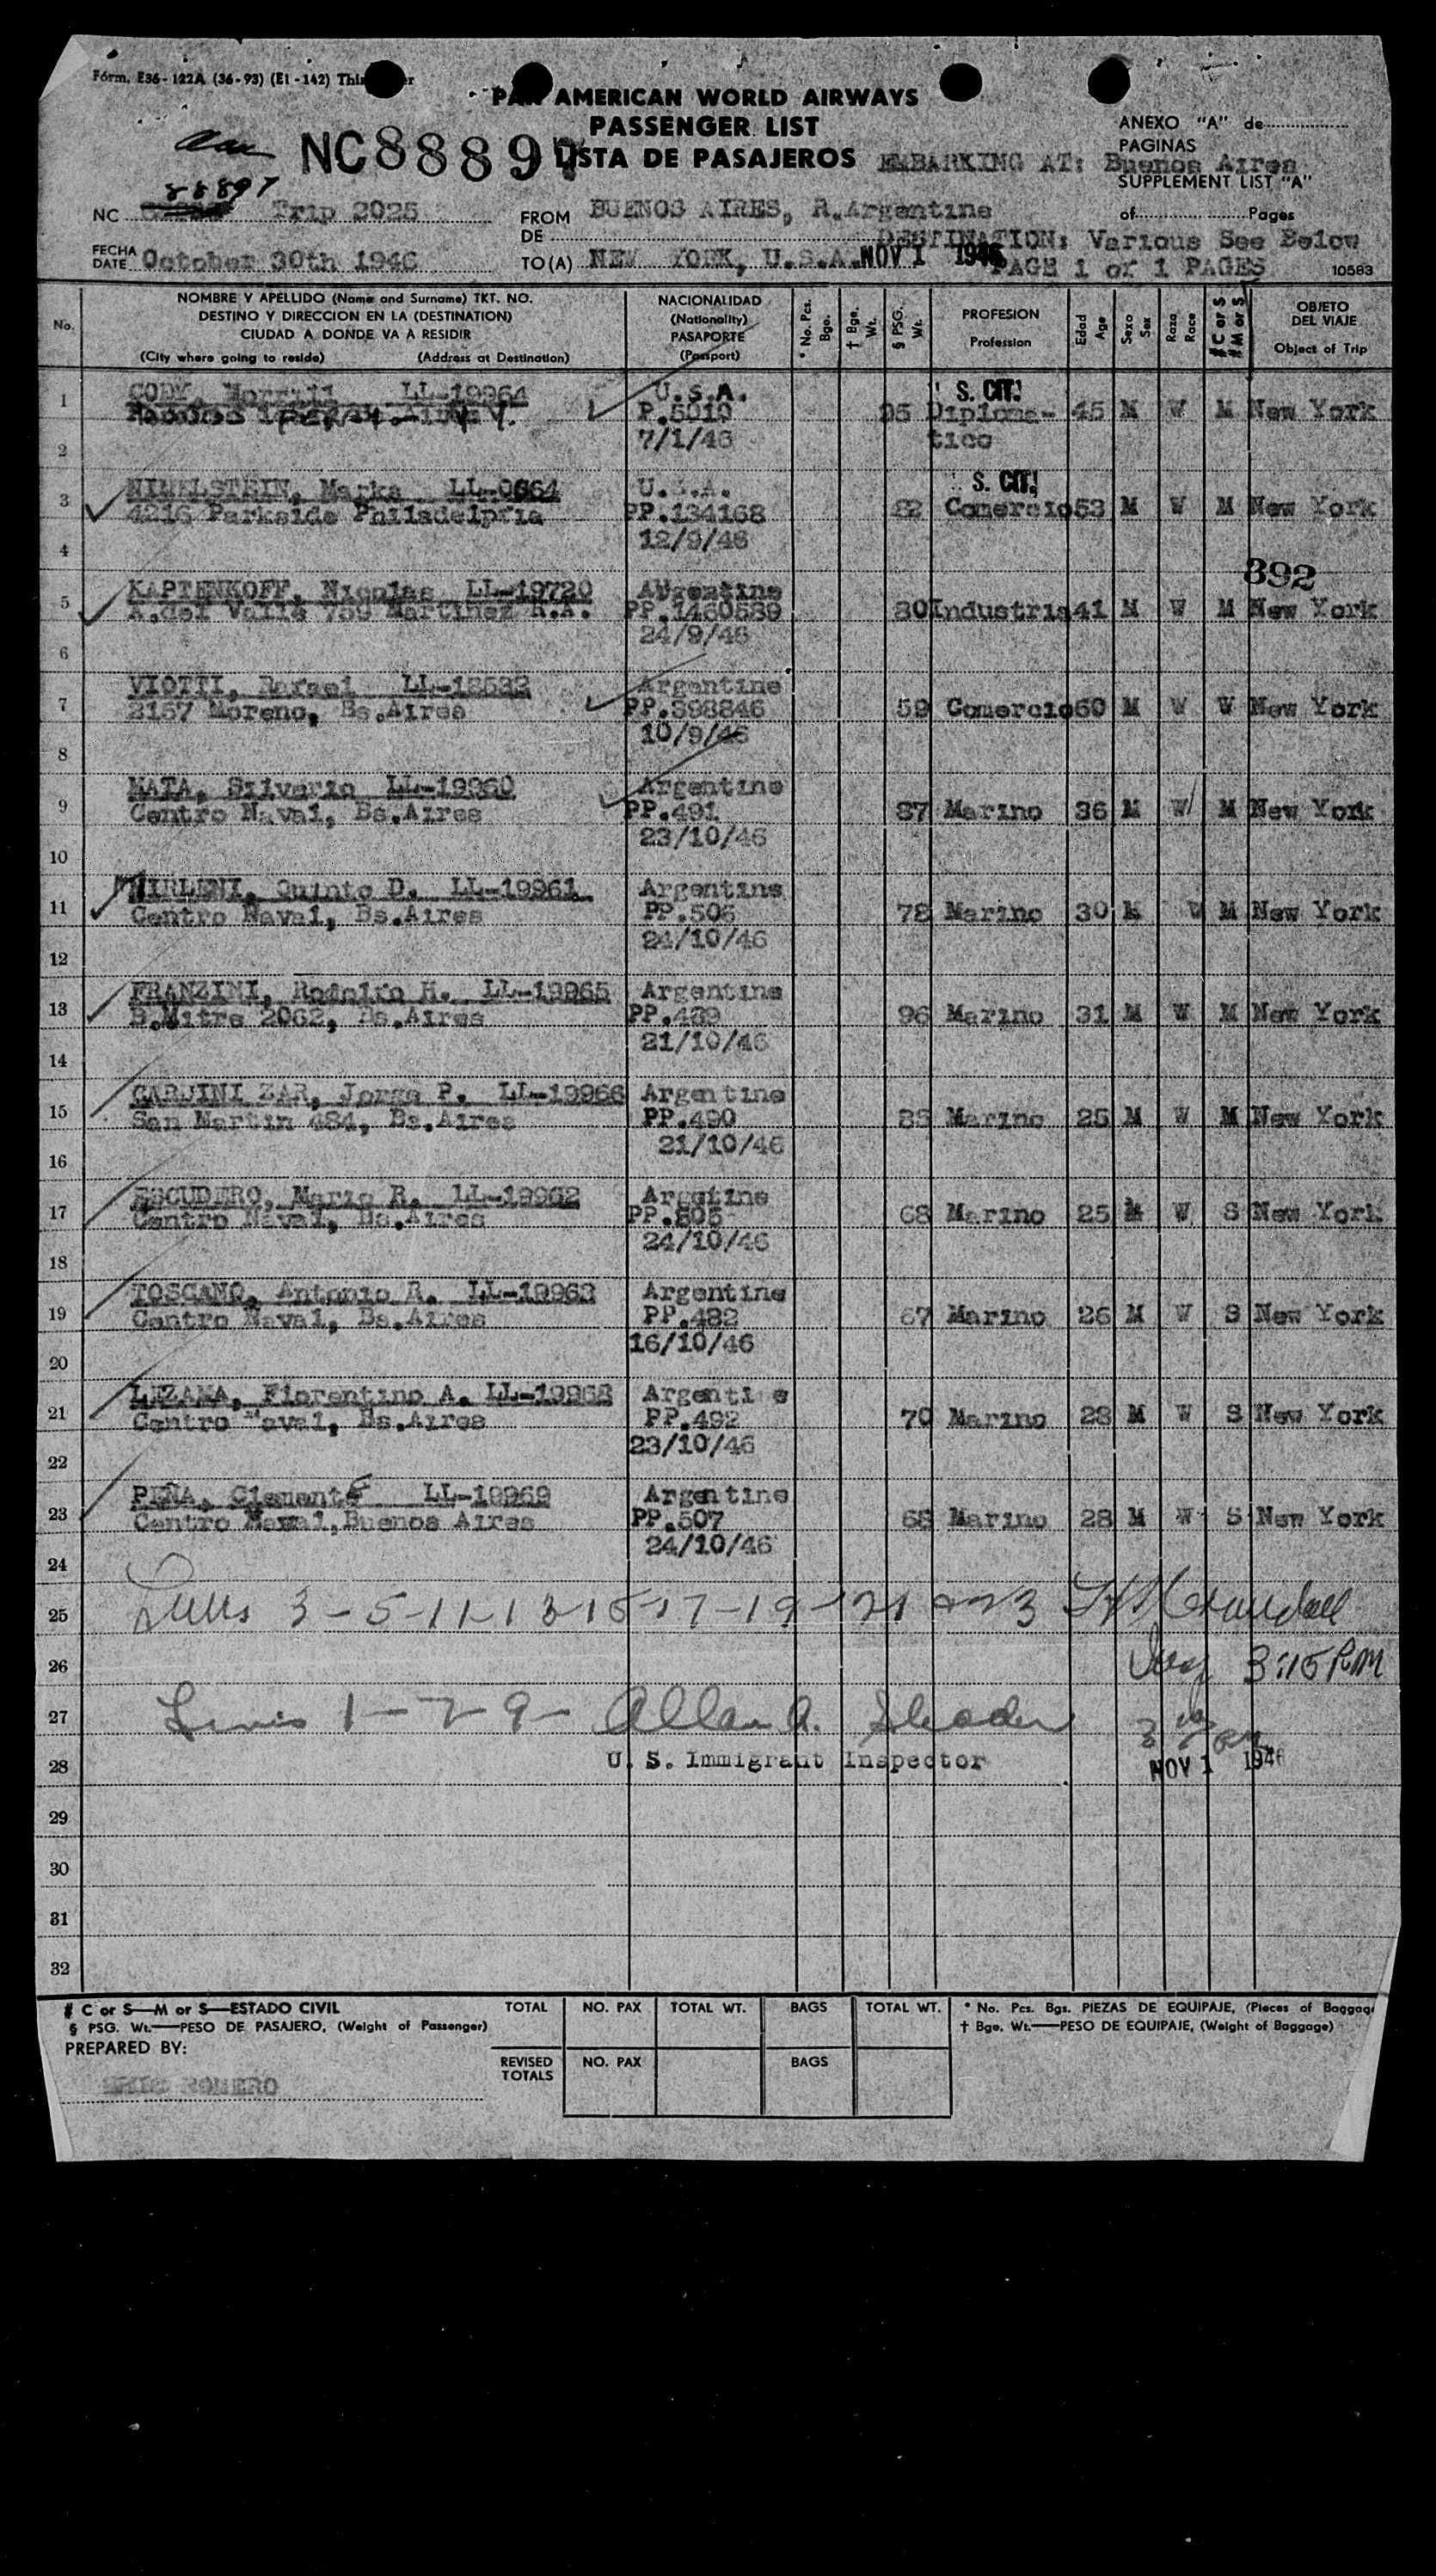 Form. E36-122A (36-93) (E1-142)
PAN AMERICAN WORLD AIRWAYS
PASSENGER LIST
LISTA DE PASAJEROS
NC88897
ANEXO "A" de
PAGINAS
EMBARKING AT: Buenos Aires
SUPPLEMENT LIST "A"
88897
NC Trip 2025
FROM BUENOS AIRES, R.Argentina
DE
of Pages
DESTINATION: Various See Below
FECHA
DATE October 30th 1946
TO (A) NEW YORK, U.S.A. NOV 1 1946
PAGE 1 of 1 PAGES
10583
No.
NOMBRE Y APELLIDO (Name and Surname) TKT. NO.
DESTINO Y DIRECCION EN LA (DESTINATION)
CIUDAD A DONDE VA A RESIDIR
(City where going to reside) (Address at Destination)
NACIONALIDAD
(Nationality)
PASAPORTE
(Passport)
* No. Pcs. Bgs.
† Bge. Wt.
§ PSG. Wt.
PROFESION
Profession
Edad
Age
Sexo
Sex
Raza
Race
# C or S
# M or S
OBJETO
DEL VIAJE
Object of Trip
1 CODY, LL-19964 U.S.A. S. CIT.
P.5019 95 Diploma- 45 M W M New York
2 7/1/46 tico
3 Marks LL-0664 U.S.A. S. CIT.
4216 Parkside Philadelphia PP.134168 82 Comercio 53 M W M New York
4 12/9/46
892
5 KAPTENKOFF, Nicolas LL-19720 Argentine
A.del Valle 789 Martinez R.A. PP.1460539 80 Industria 41 M W M New York
24/9/46
6
7 VIOTTI, Rafael LL-18532 Argentine
2157 Moreno, Bs.Aires PP.398846 59 Comercio 60 M W W New York
10/9/46
8
9 MATA, Silverio LL-19960 Argentine
Centro Naval, Bs.Aires PP.491 87 Marino 36 M W M New York
23/10/46
10
11 Quinto D. LL-19961 Argentine
Centro Naval, Bs.Aires PP.506 78 Marino 30 M W M New York
24/10/46
12
13 FRANZINI, Rodolfo H. LL-19965 Argentine
B.Mitre 2062, Bs.Aires PP.489 96 Marino 31 M W M New York
21/10/46
14
15 ZAR, Jorge P. LL-19966 Argentine
San Martin 484, Bs.Aires PP.490 83 Marino 25 M W M New York
21/10/46
16
17 ESCUDERO, Mario R. LL-19962 Argetine
Centro Naval, Bs.Aires PP.505 68 Marino 25 M W S New York
24/10/46
18
19 TOSCANO, Antonio R. LL-19963 Argentine
Centro Naval, Bs.Aires PP.482 67 Marino 26 M W S New York
16/10/46
20
21 LEZAMA, Florentino A. LL-19968 Argenti e
Centro Naval, Bs.Aires PP.492 70 Marino 28 M W S New York
23/10/46
22
23 PEÑA, Clemente LL-19969 Argentine
Centro Naval, Buenos Aires PP.507 68 Marino 28 M W S New York
24/10/46
24
25 Lines 3-5-11-13-15-17-19-21 and 23
26 Insp 3:15 PM
27 Lines 1-7-9- Allan A.
28 U. S. Immigrant Inspector NOV 1 1946
29
30
31
32
# C or S—M or S—ESTADO CIVIL
§ PSG. Wt.—PESO DE PASAJERO, (Weight of Passenger)
PREPARED BY:
ROMERO
TOTAL NO. PAX TOTAL WT. BAGS TOTAL WT.
REVISED TOTALS NO. PAX BAGS
* No. Pcs. Bgs. PIEZAS DE EQUIPAJE, (Pieces of Baggage
† Bge. Wt.—PESO DE EQUIPAJE, (Weight of Baggage)